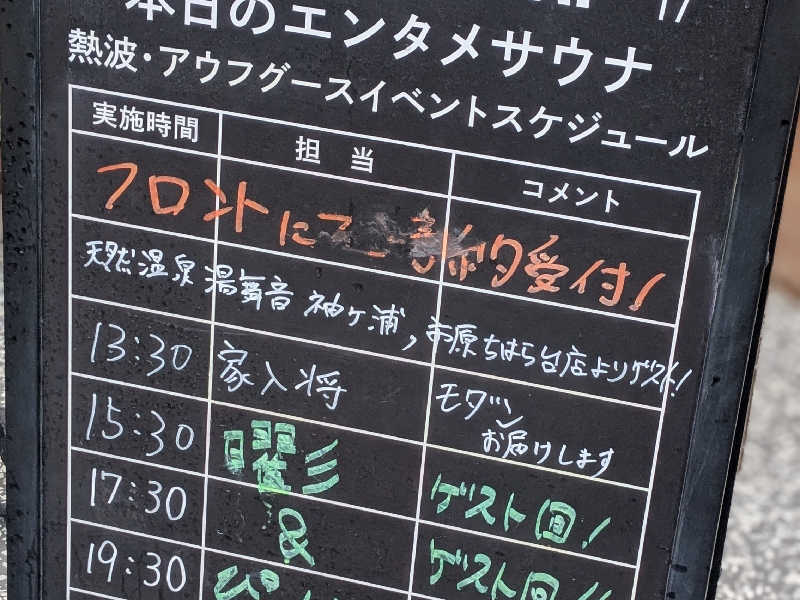 本日のエンタメサウナ
熱波・アウフグースイベントスケジュール
実施時間 担当 コメント
フロントにてご予約受付!
天然温泉 湯舞音 袖ケ浦, 市原ちはら台店よりゲスト!
13:30 家入将 モダン
お届けします
15:30 曜彡 ゲスト回!
17:30 &
19:30 ゲスト回!!